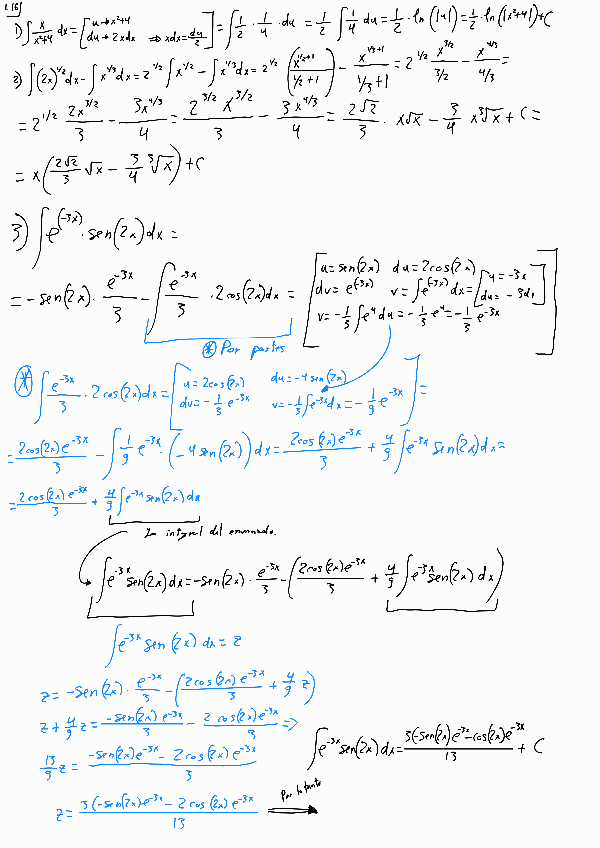 1.16)
1) ∫ x/(x²+4) dx = [u → x²+4 du → 2x dx ⇒ x dx = du/2] = ∫ 1/2 · 1/u · du = 1/2 ∫ 1/u du = 1/2 · ln(|u|) = 1/2 · ln(|x²+4|) + C
2) ∫(2x)^(1/2) dx - ∫x^(1/3) dx = 2^(1/2) ∫x^(1/2) - ∫x^(1/3) dx = 2^(1/2) (x^(1/2+1)/(1/2+1)) - x^(1/3+1)/(1/3+1) = 2^(1/2) x^(3/2)/(3/2) - x^(4/3)/(4/3) =
= 2^(1/2) 2x^(3/2)/3 - 3x^(4/3)/4 = 2^(3/2) x^(3/2)/3 - 3x^(4/3)/4 = 2√2/3 · x√x - 3/4 x ∛x + C =
= x(2√2/3 √x - 3/4 ∛x) + C
3) ∫e^(-3x) · sen(2x) dx =
= -sen(2x) · e^(-3x)/3 - ∫ e^(-3x)/3 · 2cos(2x) dx =
[u = sen(2x) du = 2cos(2x)
dv = e^(-3x) v = ∫e^(-3x) dx = [u = -3x du = -3dx]
v = -1/3 ∫e^u du = -1/3 e^u = -1/3 e^(-3x)]
(*) Por partes
(*) ∫ e^(-3x)/3 · 2cos(2x) dx = [u = 2cos(2x) du = -4sen(2x)
dv = -1/3 e^(-3x) v = -1/3 ∫e^(-3x) dx = -1/9 e^(-3x)] =
= 2cos(2x)e^(-3x)/3 - ∫ 1/9 e^(-3x) · (-4sen(2x)) dx = 2cos(2x)e^(-3x)/3 + 4/9 ∫e^(-3x) sen(2x) dx =
= 2cos(2x)e^(-3x)/3 + 4/9 ∫e^(-3x) sen(2x) dx
La integral del enunciado.
∫e^(-3x) sen(2x) dx = -sen(2x) · e^(-3x)/3 - (2cos(2x)e^(-3x)/3 + 4/9 ∫e^(-3x) sen(2x) dx)
∫e^(-3x) sen(2x) dx = z
z = -sen(2x) · e^(-3x)/3 - (2cos(2x)e^(-3x)/3 + 4/9 z)
z + 4/9 z = -sen(2x)e^(-3x)/3 - 2cos(2x)e^(-3x)/3 ⇒
13/9 z = (-sen(2x)e^(-3x) - 2cos(2x)e^(-3x))/3
z = 3(-sen(2x)·e^(-3x) - 2cos(2x)e^(-3x))/13
Por lo tanto
∫e^(-3x) sen(2x) dx = 3(-sen(2x)e^(-3x) - cos(2x)e^(-3x))/13 + C